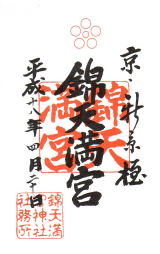 京・新京極
錦天満宮
平成十八年四月二十日
錦天
満宮
錦天満
宮神社
社務所